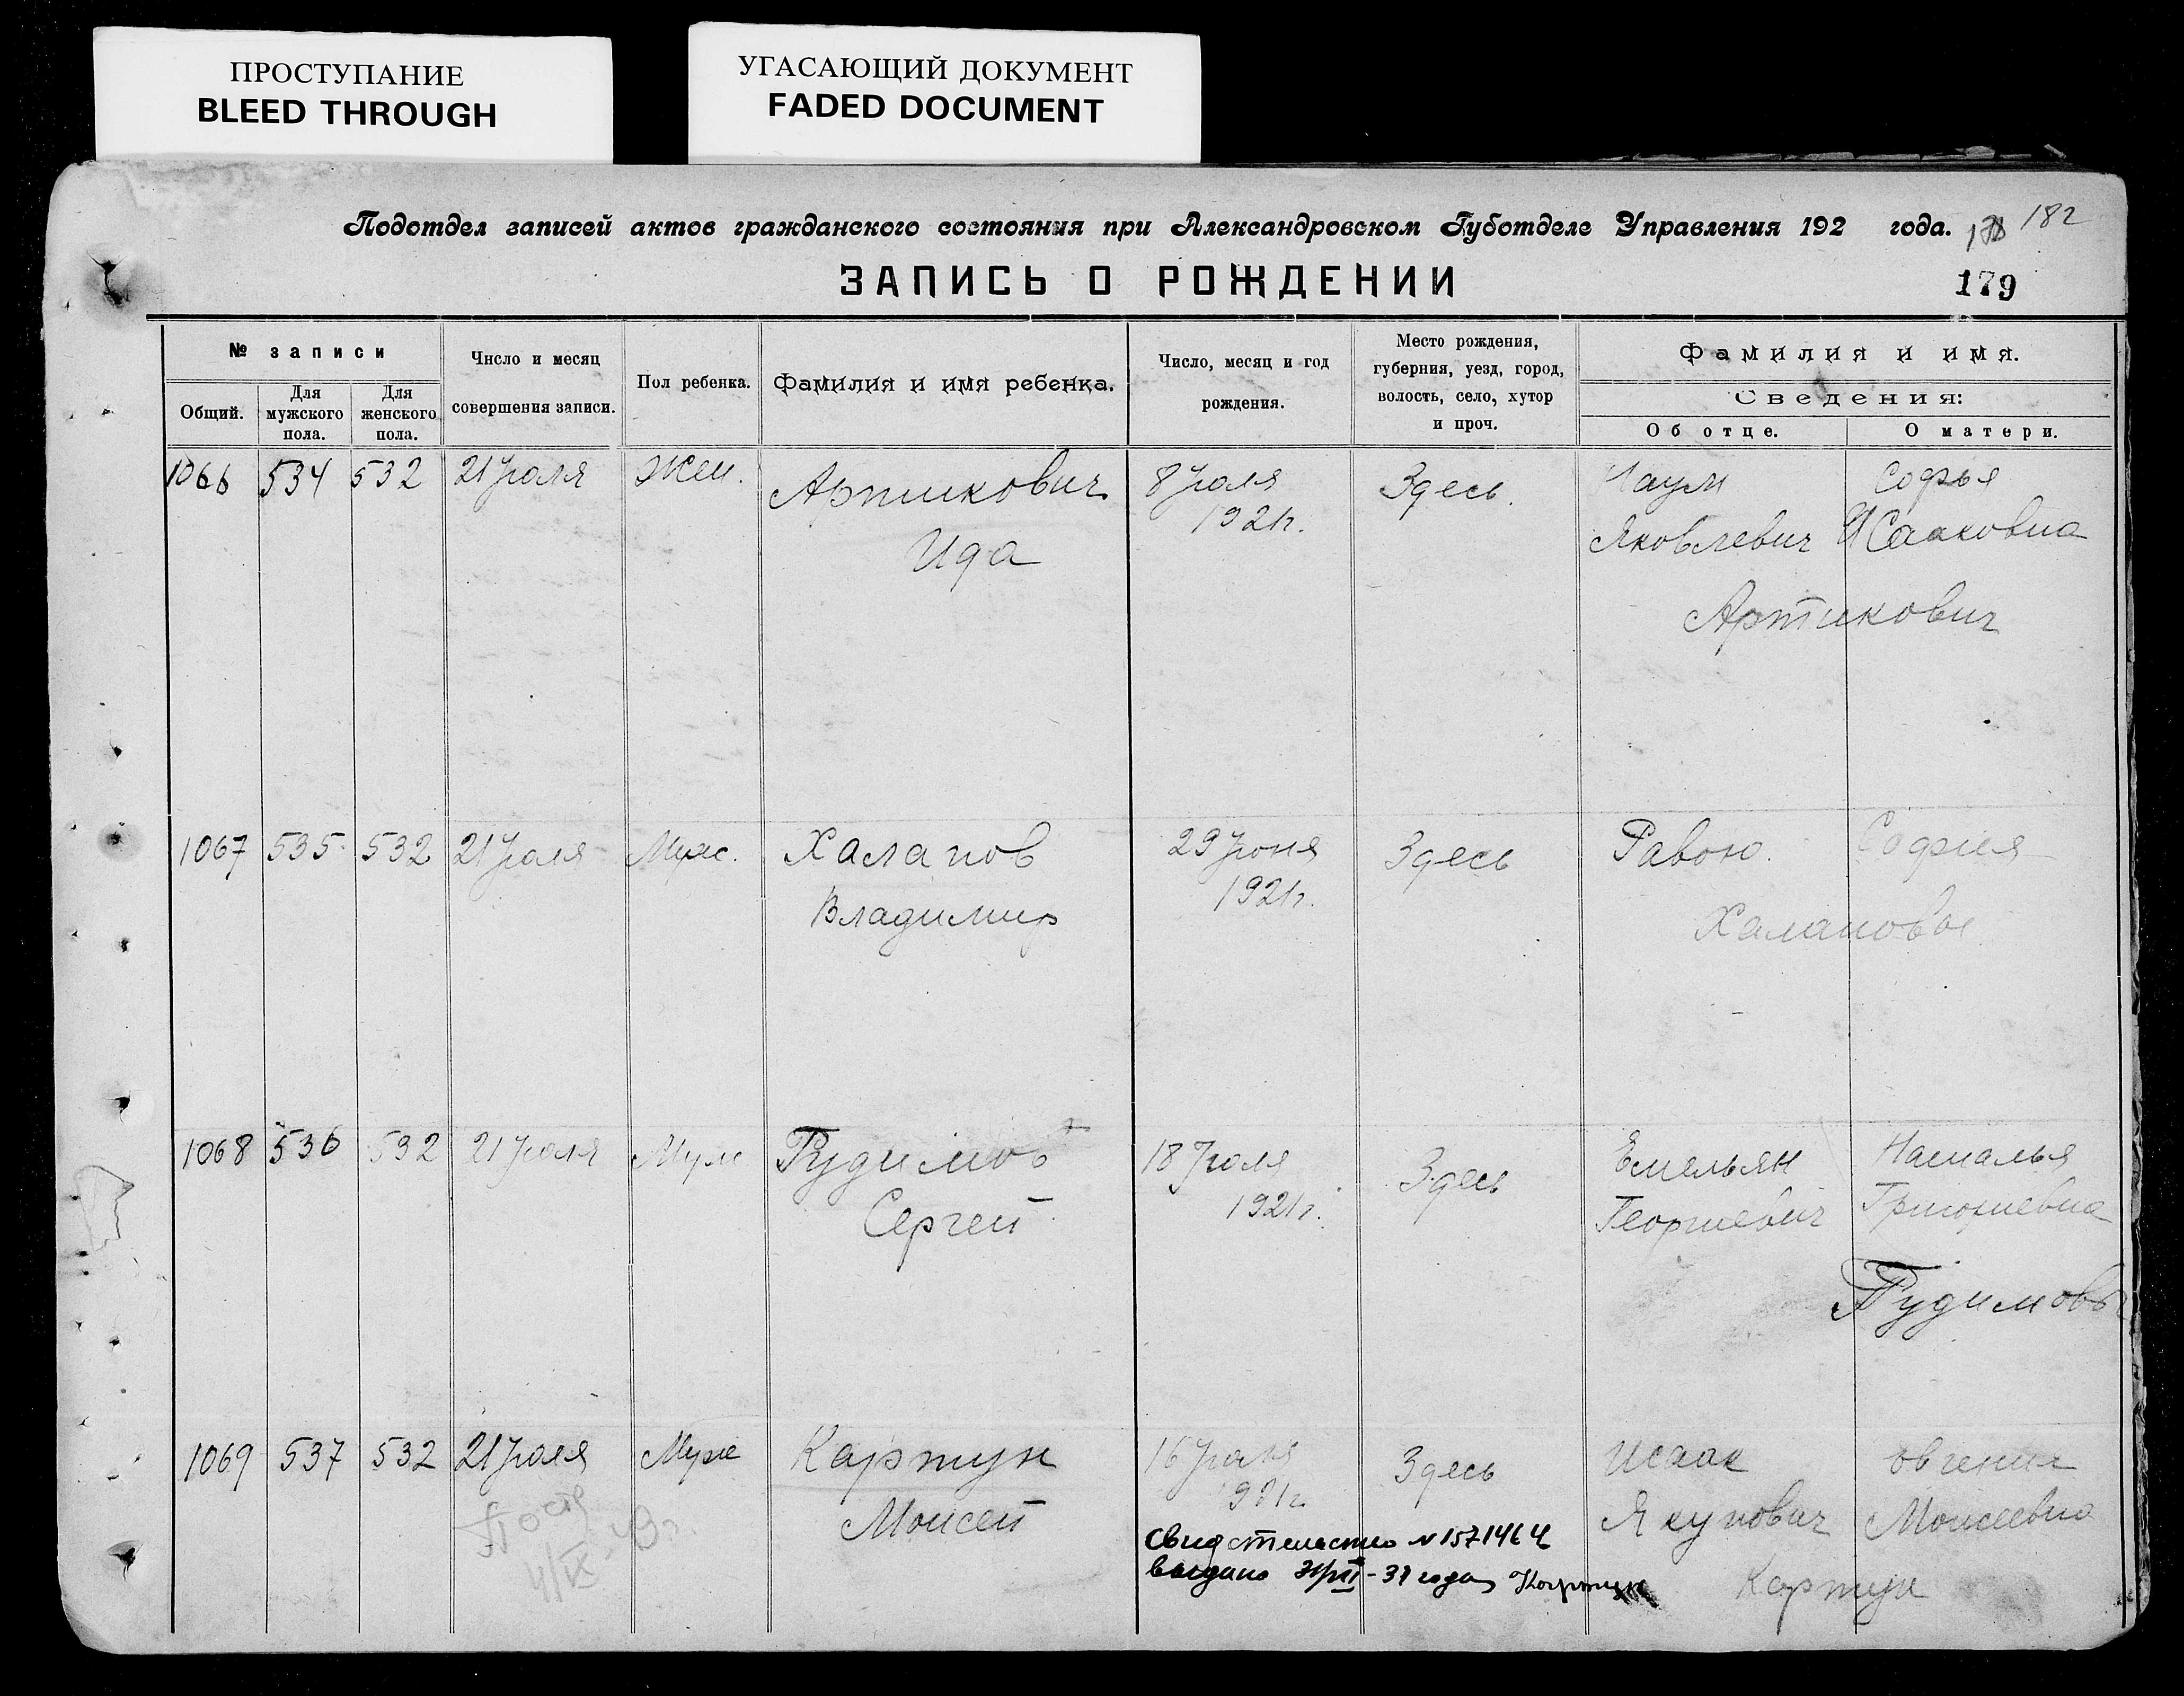 ПРОСТУПАНИЕ
BLEED THROUGH
УГАСАЮЩИЙ ДОКУМЕНТ
FADED DOCUMENT
Подотдел записей актов гражданского состояния при Александровском Губотделе Управления 192 года.
182
ЗАПИСЬ О РОЖДЕНИИ
179
№ записи
Общий.
Для мужского пола.
Для женского пола.
Число и месяц совершения записи.
Пол ребенка.
Фамилия и имя ребенка.
Число, месяц и год рождения.
Место рождения, губерния, уезд, город, волость, село, хутор и проч.
Фамилия и имя.
Сведения:
Об отце.
О матери.
1066 534 532 21 Июля Жен. Артикович 8 Июля Здесь. Наум Софья
1921г. Яковлевич Исааковна
Ида
Артикович
1067 535 532 21 Июля Муж. Халапов 29 Июня Здесь София
Владимир 1921г. Халаповы
1068 536 532 21 Июля Муж Рудимов 18 Июля Здесь Емельян Наталья
Сергей 1921г. Георгиевич Григориевна
Рудимовы
1069 537 532 21 Июля Муж Картун 16 Июля Здесь Исаак Евгения
Моисей 1921г. Якупович Моисеевна
Свидетельство № 1571464
выдано - 31 года Картун
Картун